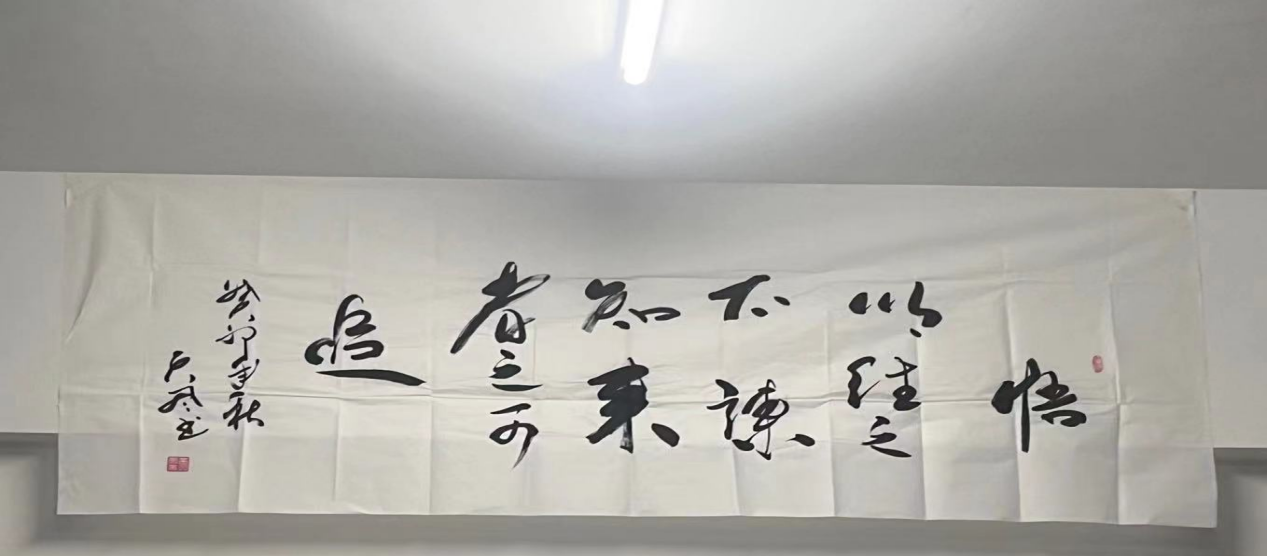 悟
以往之
不谏
知来
者之可
追
癸卯年秋